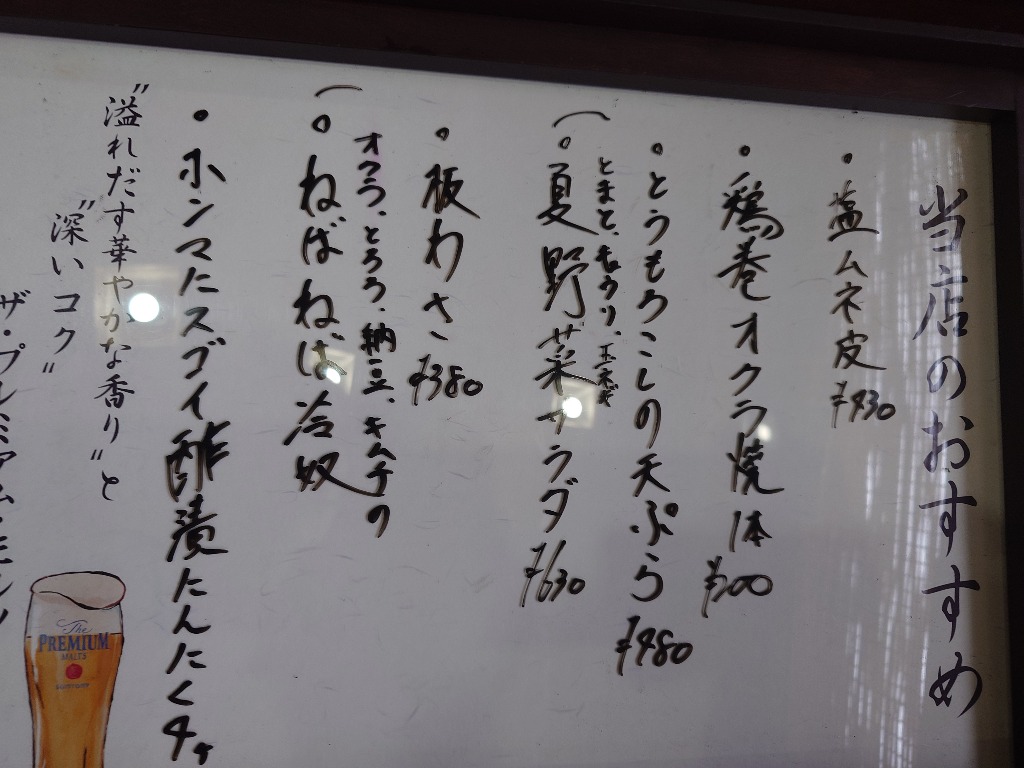 当店のおすすめ
・塩ムネ皮 ¥430
・鶏巻オクラ焼 1本 ¥200
・とうもろこしの天ぷら ¥480
とまと、きゅうり、玉ネギ
・夏野菜サラダ ¥630
・板わさ ¥380
オクラ、とろろ、納豆、キムチの
・ねばねば冷奴
・ホンマにスゴイ酢漬にんにく4ヶ
"溢れだす華やかな香り"と
"深いコク"
ザ・プレミアムモルツ
The
PREMIUM
MALTS
SUNTORY